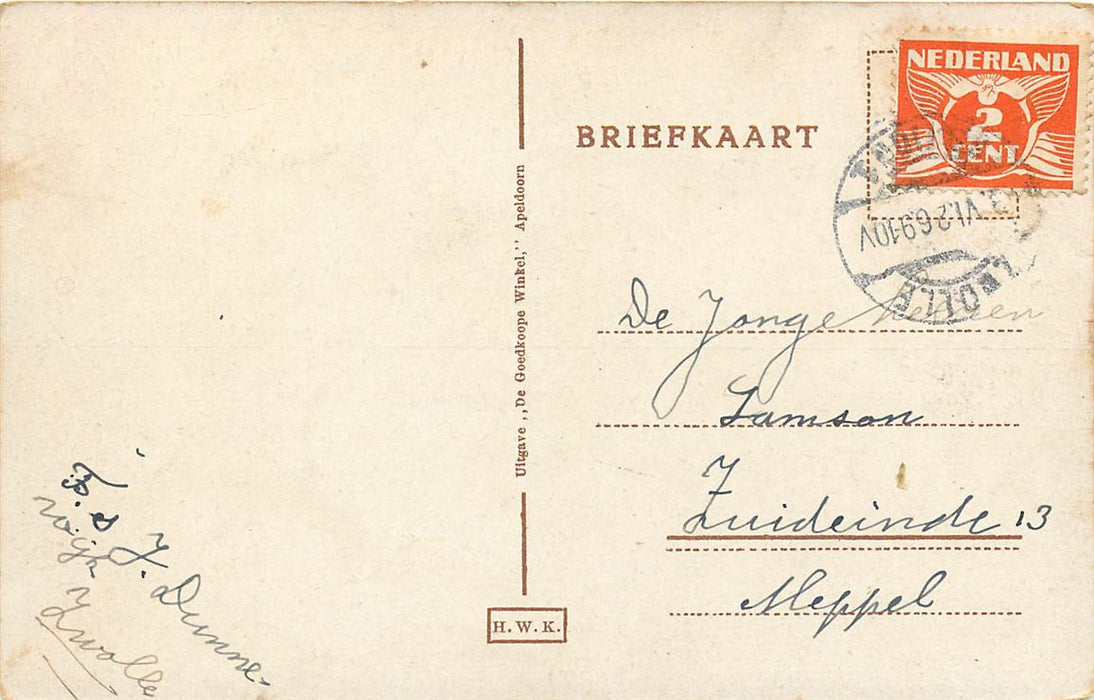 BRIEFKAART
NEDERLAND
2
CENT
VI.26.9-10V
ZWOLLE
De Jonge heeren
Samson
Zuideinde 13
Meppel
Uitgave „De Goedkoope Winkel,” Apeldoorn
H.W.K.
J. Dunne-
wijk
Zwolle